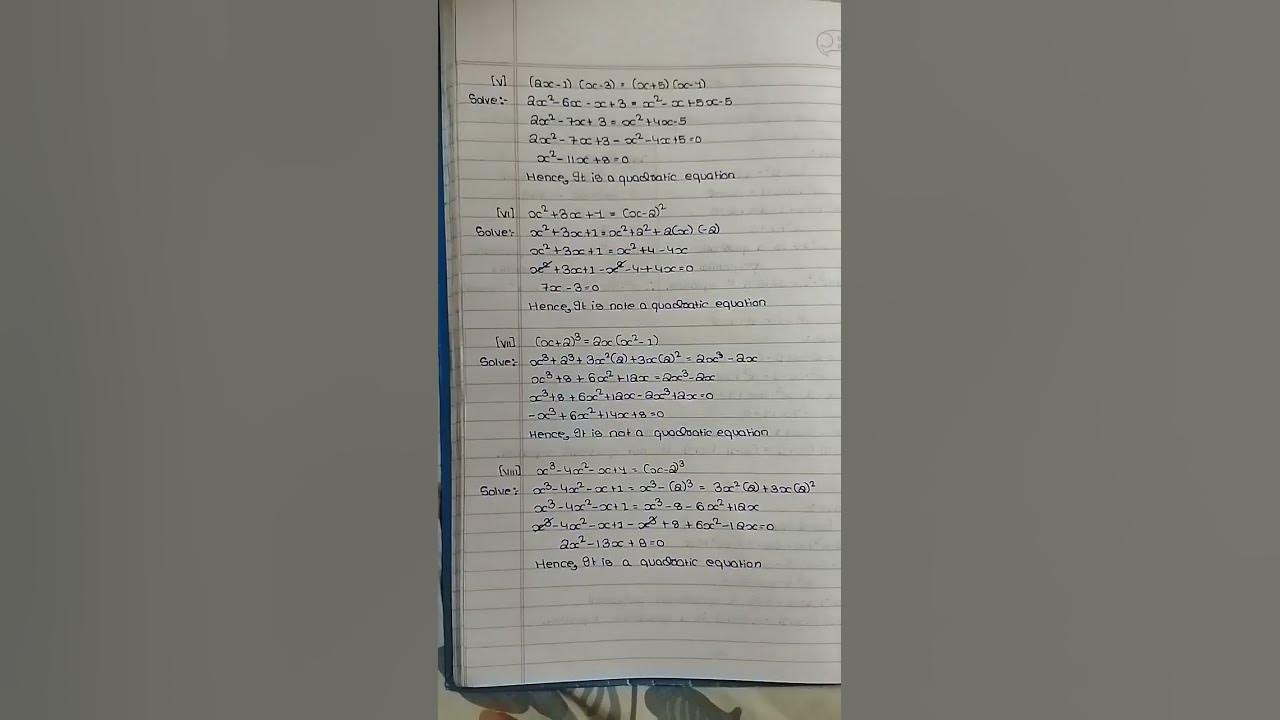 [V] (2x-1) (x-3) = (x+5) (x-1)
Solve:- 2x²-6x-x+3 = x²-x+5x-5
2x²-7x+3 = x²+4x-5
2x²-7x+3-x²-4x+5=0
x²-11x+8=0
Hence, It is a quadratic equation
[VI] x²+3x+1 = (x-2)²
Solve:- x²+3x+1=x²+2²+2(x) (-2)
x²+3x+1 = x²+4-4x
x²+3x+1-x²-4+4x=0
7x-3=0
Hence, It is note a quadratic equation
[VII] (x+2)³ = 2x(x²-1)
Solve:- x³+2³+3x²(2)+3x(2)² = 2x³-2x
x³+8+6x²+12x=2x³-2x
x³+8+6x²+12x-2x³+2x=0
-x³+6x²+14x+8=0
Hence, It is not a quadratic equation
[VIII] x³-4x²-x+1 = (x-2)³
Solve:- x³-4x²-x+1 = x³-(2)³ = 3x²(2)+3x(2)²
x³-4x²-x+1 = x³-8-6x²+12x
x³-4x²-x+1-x³+8+6x²-12x=0
2x²-13x+8=0
Hence, It is a quadratic equation